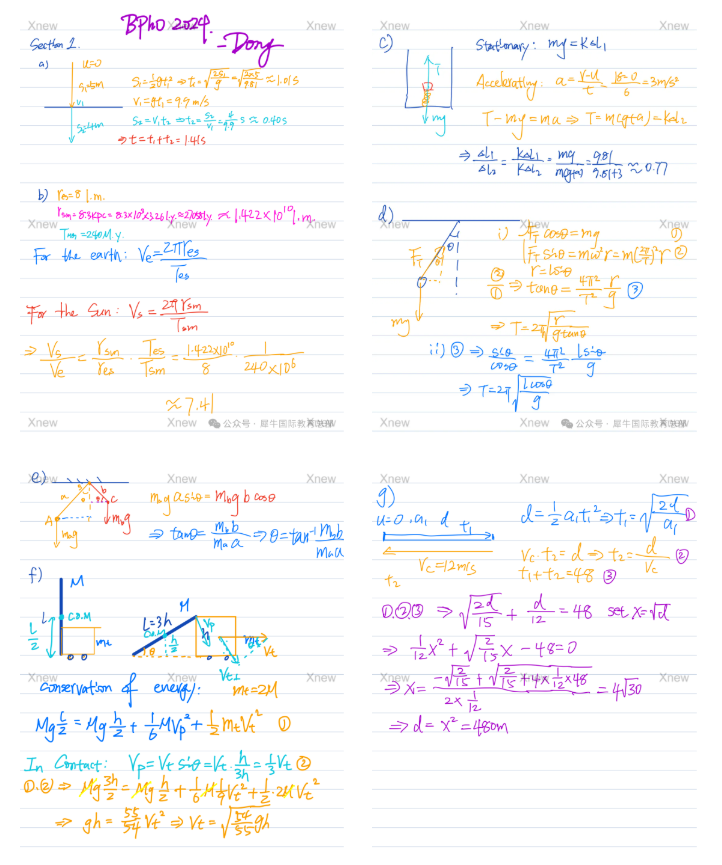 BPhO 2024.
-Dong
Section 1.
a)
u=0
S₁=5m
V₁
S₂=4m
S₁=½gt₁² ⇒ t₁=√(2S₁/g)=√(2×5/9.81)≈1.01s
V₁=gt₁=9.9m/s
S₂=V₁t₂ ⇒ t₂=S₂/V₁=4/9.9 s≈0.40s
⇒ t=t₁+t₂=1.41s
b) r_es=8 l.m.
r_sm=8.3kpc=8.3×10³×3.26 l.y.≈27058 l.y. ≈1.422×10¹⁰ l.m.
T_sm=240M y
For the earth: Ve=2πr_es/T_es
For the Sun: Vs=2πr_sm/T_sm
⇒ Vs/Ve=r_sm/r_es·T_es/T_sm=1.422×10¹⁰/8·1/(240×10⁶)
≈7.41
c)
T
mg
Stationary: mg=KΔL₁
Accelerating: a=(V-U)/t=(18-0)/6=3m/s²
T-mg=ma ⇒ T=m(g+a)=KΔL₂
⇒ ΔL₁/ΔL₂=KΔL₁/KΔL₂=mg/m(g+a)=9.81/(9.81+3)≈0.77
d)
θ
F_T
mg
i) F_T cosθ=mg ①
F_T sinθ=mω²r=m(2π/T)²r ②
r=lsinθ
②/① ⇒ tanθ=4π²/T² r/g ③
⇒ T=2π√(r/(g tanθ))
ii) ③ ⇒ sinθ/cosθ=4π²/T² lsinθ/g
⇒ T=2π√(lcosθ/g)
e)
a
b
A
C
m_a g
m_b g
m_a g a sinθ=m_b g b cosθ
⇒ tanθ=m_b b/m_a a ⇒ θ=tan⁻¹ m_b b/m_a a
f)
M
L
C.O.M
L/2
m_t
L=3h
M
C.O.M
h/2
θ
Vp
h
m_t
V_t
V_t⊥
conservation of energy: m_t=2M
Mg L/2=Mg h/2+1/6 MVp²+1/2 m_tV_t² ①
In Contact: Vp=V_t sinθ=V_t·h/3h=1/3 V_t ②
①.② ⇒ Mg 3h/2=Mg h/2+1/6 M 1/9 V_t²+1/2·2M V_t²
⇒ gh=55/54 V_t² ⇒ V_t=√(54/55 gh)
g)
u=0.a₁ d t₁
Vc=12m/s
t₂
d=½a₁t₁² ⇒ t₁=√(2d/a₁) ①
Vc t₂=d ⇒ t₂=d/Vc ②
t₁+t₂=48 ③
①.②③ ⇒ √(2d/15)+d/12=48 set x=√d
⇒ 1/12 x²+√(2/15) x-48=0
⇒ x=(-√(2/15)+√(2/15+4×1/12×48))/(2×1/12)=4√30
⇒ d=x²=480m
Xnew Xnew Xnew Xnew
Xnew Xnew Xnew Xnew
Xnew 公众号·犀牛国际教育 Xnew 公众号·犀牛国际教育
Xnew Xnew Xnew Xnew